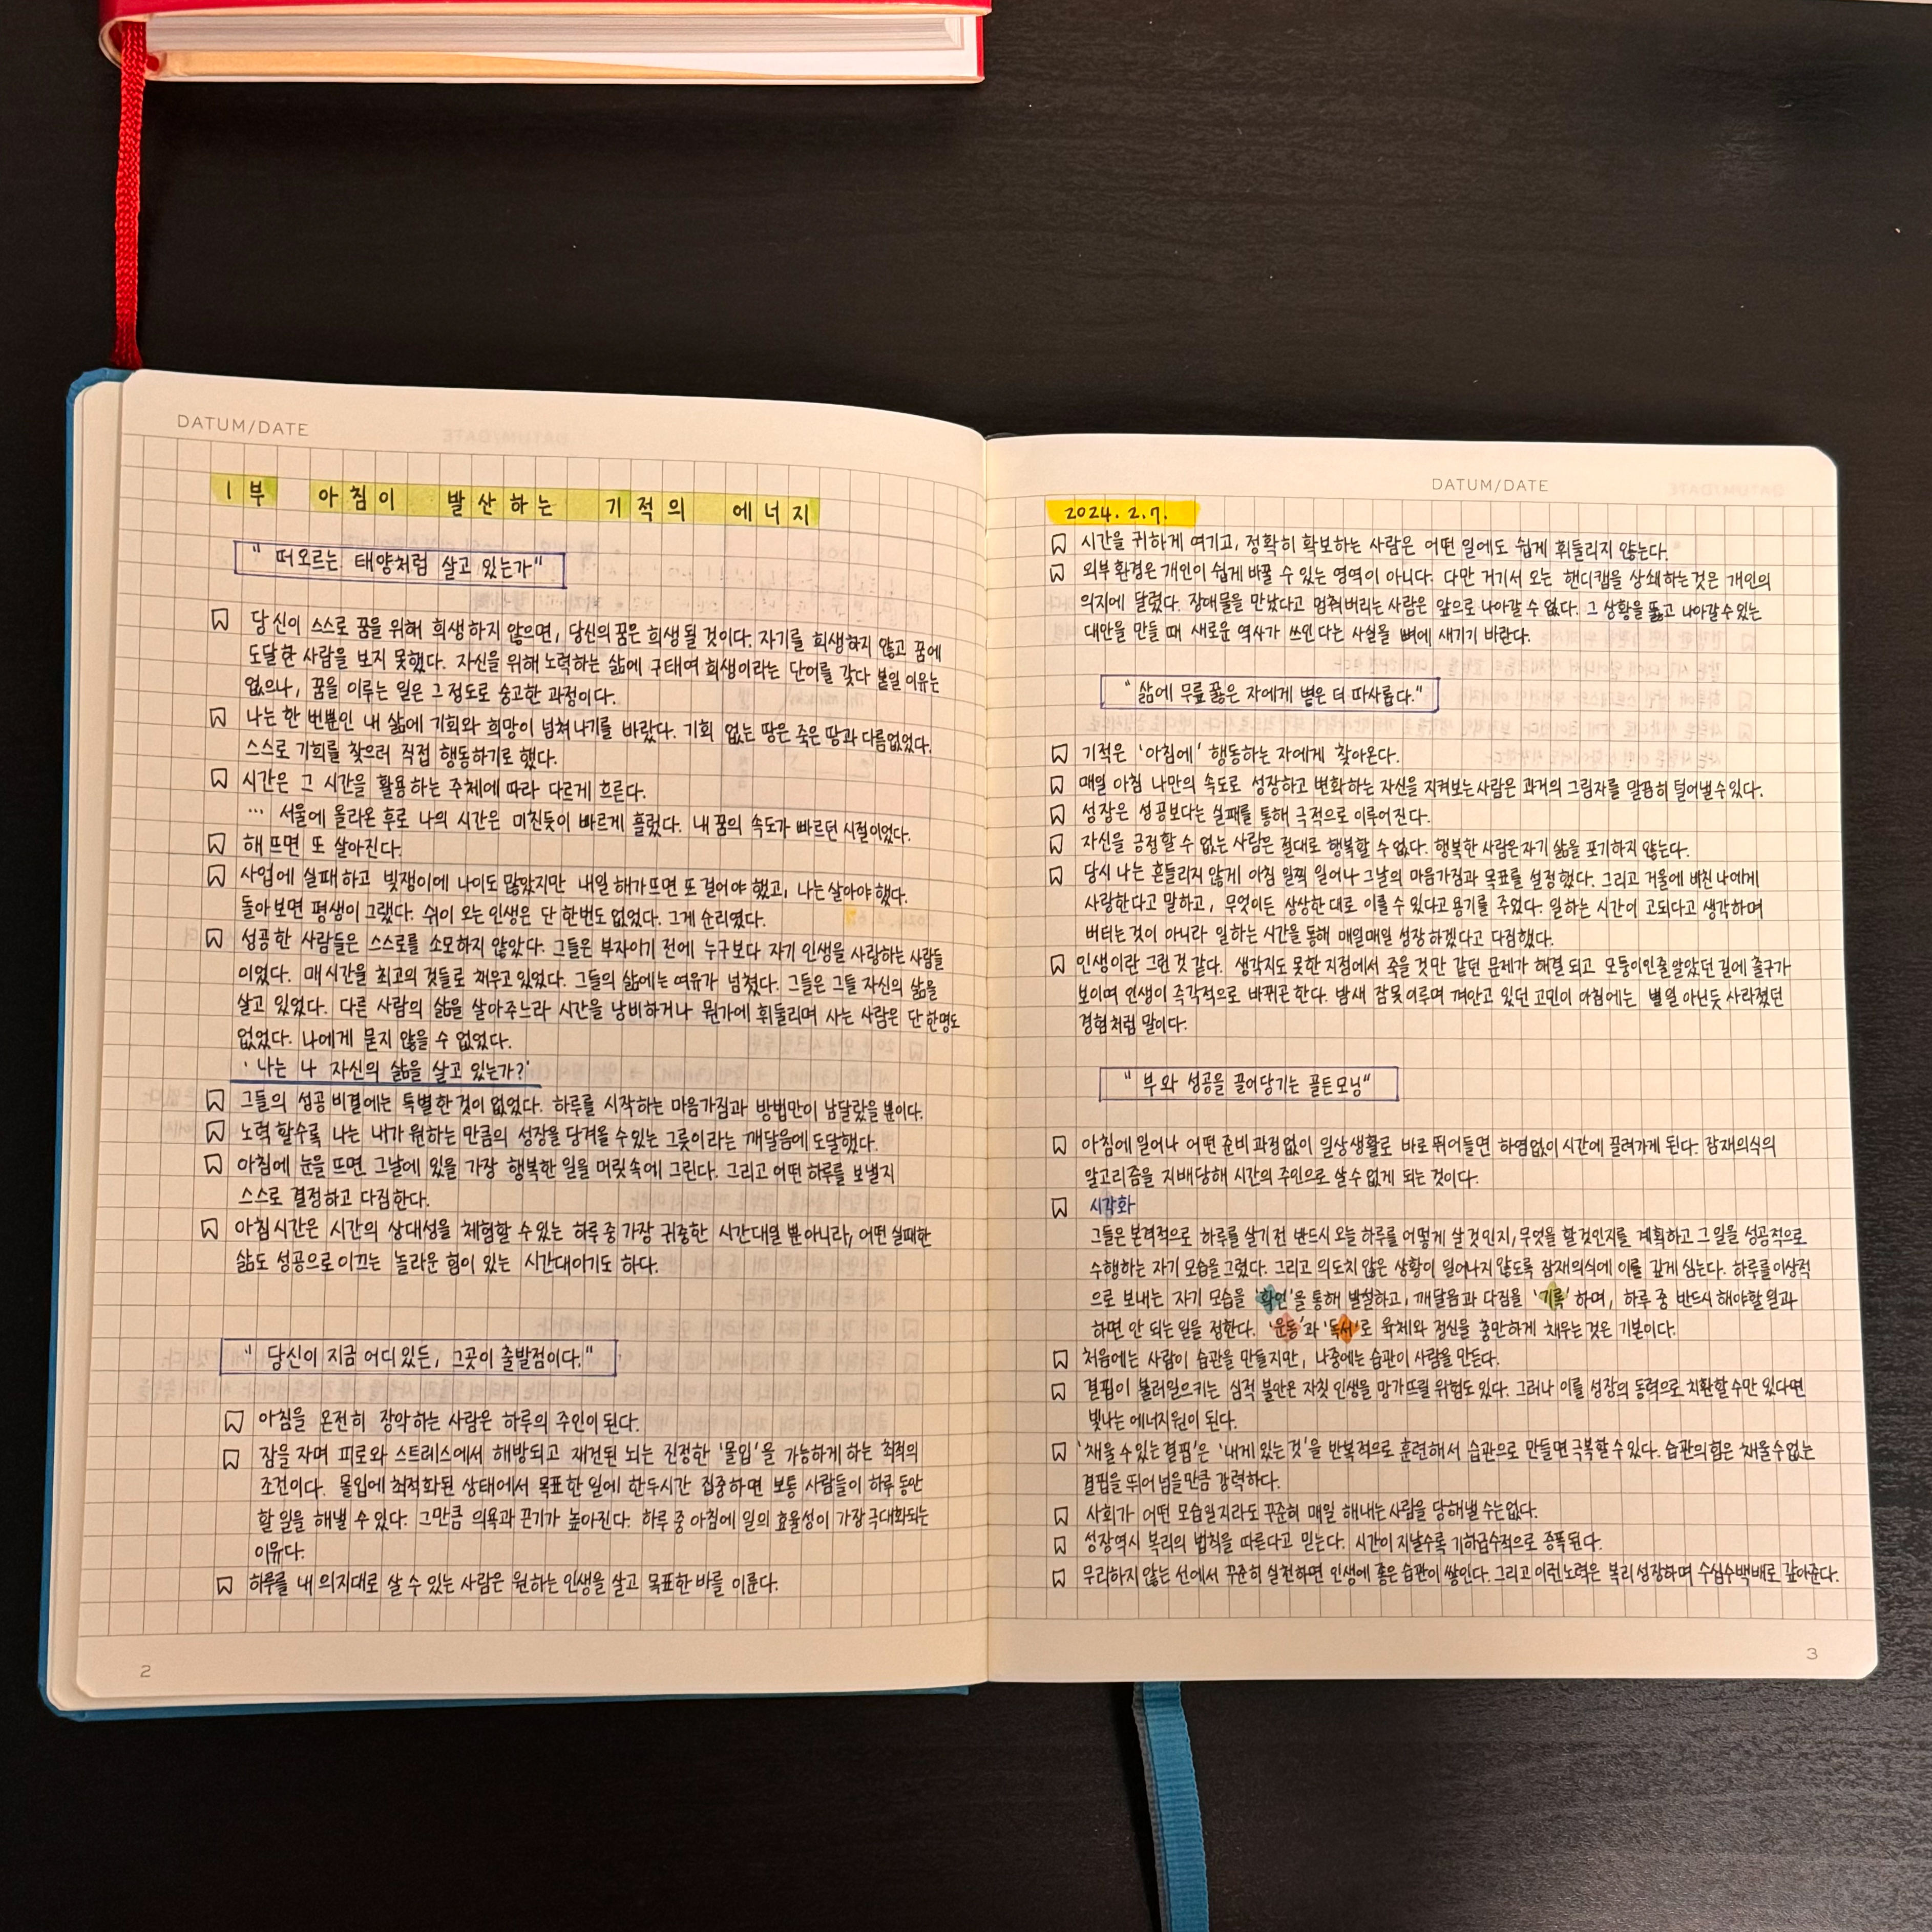 DATUM/DATE
1부 아침이 발산하는 기적의 에너지
" 떠오르는 태양처럼 살고 있는가"
당신이 스스로 꿈을 위해 희생하지 않으면, 당신의 꿈은 희생 될 것이다. 자기를 희생하지 않고 꿈에
도달한 사람을 보지 못했다. 자신을 위해 노력하는 삶에 구태여 희생이라는 단어를 갖다 붙일 이유는
없으나, 꿈을 이루는 일은 그 정도로 숭고한 과정이다.
나는 한 번뿐인 내 삶에 기회와 희망이 넘쳐나기를 바랐다. 기회 없는 땅은 죽은 땅과 다름없었다.
스스로 기회를 찾으러 직접 행동하기로 했다.
시간은 그 시간을 활용하는 주체에 따라 다르게 흐른다.
… 서울에 올라온 후로 나의 시간은 미친듯이 빠르게 흘렀다. 내 꿈의 속도가 빠르던 시절이었다.
해 뜨면 또 살아진다.
사업에 실패하고 빚쟁이에 나이도 많았지만 내일 해가 뜨면 또 걸어야 했고, 나는 살아야 했다.
돌아보면 평생이 그랬다. 쉬이 오는 인생은 단 한번도 없었다. 그게 순리였다.
성공한 사람들은 스스로를 소모하지 않았다. 그들은 부자이기 전에 누구보다 자기 인생을 사랑하는 사람들
이었다. 매시간을 최고의 것들로 채우고 있었다. 그들의 삶에는 여유가 넘쳤다. 그들은 그들 자신의 삶을
살고 있었다. 다른 사람의 삶을 살아주느라 시간을 낭비하거나 뭔가에 휘둘리며 사는 사람은 단 한명도
없었다. 나에게 묻지 않을 수 없었다.
' 나는 나 자신의 삶을 살고 있는가?'
그들의 성공 비결에는 특별한 것이 없었다. 하루를 시작하는 마음가짐과 방법만이 남달랐을 뿐이다.
노력할수록 나는 내가 원하는 만큼의 성장을 당겨올 수 있는 그릇이라는 깨달음에 도달했다.
아침에 눈을 뜨면 그날에 있을 가장 행복한 일을 머릿속에 그린다. 그리고 어떤 하루를 보낼지
스스로 결정하고 다짐한다.
아침시간은 시간의 상대성을 체험할 수 있는 하루 중 가장 귀중한 시간대일 뿐 아니라, 어떤 실패한
삶도 성공으로 이끄는 놀라운 힘이 있는 시간대이기도 하다.
" 당신이 지금 어디 있든, 그곳이 출발점이다."
아침을 온전히 장악하는 사람은 하루의 주인이 된다.
잠을 자며 피로와 스트레스에서 해방되고 재건된 뇌는 진정한 '몰입'을 가능하게 하는 최적의
조건이다. 몰입에 최적화된 상태에서 목표한 일에 한두시간 집중하면 보통 사람들이 하루 동안
할 일을 해낼 수 있다. 그만큼 의욕과 끈기가 높아진다. 하루 중 아침에 일의 효율성이 가장 극대화되는
이유다.
하루를 내 의지대로 살 수 있는 사람은 원하는 인생을 살고 목표한 바를 이룬다.
2
DATUM/DATE
2024. 2. 7.
시간을 귀하게 여기고, 정확히 확보하는 사람은 어떤 일에도 쉽게 휘둘리지 않는다.
외부 환경은 개인이 쉽게 바꿀 수 있는 영역이 아니다. 다만 거기서 오는 핸디캡을 상쇄하는 것은 개인의
의지에 달렸다. 장애물을 만났다고 멈춰버리는 사람은 앞으로 나아갈 수 없다. 그 상황을 뚫고 나아갈 수 있는
대안을 만들 때 새로운 역사가 쓰인다는 사실을 뼈에 새기기 바란다.
" 삶에 무릎 꿇은 자에게 볕은 더 따사롭다."
기적은 '아침에' 행동하는 자에게 찾아온다.
매일 아침 나만의 속도로 성장하고 변화하는 자신을 지켜보는 사람은 과거의 그림자를 말끔히 털어낼 수 있다.
성장은 성공보다는 실패를 통해 극적으로 이루어진다.
자신을 긍정할 수 없는 사람은 절대로 행복할 수 없다. 행복한 사람은 자기 삶을 포기하지 않는다.
당시 나는 흔들리지 않게 아침 일찍 일어나 그날의 마음가짐과 목표를 설정했다. 그리고 거울에 비친 나에게
사랑한다고 말하고, 무엇이든 상상한 대로 이룰 수 있다고 용기를 주었다. 일하는 시간이 고되다고 생각하며
버티는 것이 아니라 일하는 시간을 통해 매일매일 성장 하겠다고 다짐했다.
인생이란 그런 것 같다. 생각지도 못한 지점에서 죽을 것만 같던 문제가 해결되고 모퉁이인 줄 알았던 길에 출구가
보이며 인생이 즉각적으로 바뀌곤 한다. 밤새 잠 못 이루며 껴안고 있던 고민이 아침에는 별일 아닌듯 사라졌던
경험처럼 말이다.
" 부와 성공을 끌어당기는 골든모닝"
아침에 일어나 어떤 준비 과정없이 일상생활로 바로 뛰어들면 하염없이 시간에 끌려가게 된다. 잠재의식의
알고리즘을 지배당해 시간의 주인으로 살 수 없게 되는 것이다.
시각화
그들은 본격적으로 하루를 살기 전 반드시 오늘 하루를 어떻게 살 것인지, 무엇을 할 것인지를 계획하고 그 일을 성공적으로
수행하는 자기 모습을 그렸다. 그리고 의도치 않은 상황이 일어나지 않도록 잠재의식에 이를 깊게 심는다. 하루를 이상적
으로 보내는 자기 모습을 '확언'을 통해 발설하고, 깨달음과 다짐을 '기록' 하며, 하루 중 반드시 해야할 일과
하면 안 되는 일을 정한다. '운동'과 '독서'로 육체와 정신을 충만하게 채우는 것은 기본이다.
처음에는 사람이 습관을 만들지만, 나중에는 습관이 사람을 만든다.
결핍이 불러일으키는 심적 불안은 자칫 인생을 망가뜨릴 위험도 있다. 그러나 이를 성장의 동력으로 치환할 수만 있다면
빛나는 에너지원이 된다.
'채울 수 있는 결핍'은 '내게 있는 것'을 반복적으로 훈련해서 습관으로 만들면 극복할 수 있다. 습관의 힘은 채울 수 없는
결핍을 뛰어 넘을만큼 강력하다.
사회가 어떤 모습일지라도 꾸준히 매일 해내는 사람을 당해낼 수는 없다.
성장역시 복리의 법칙을 따른다고 믿는다. 시간이 지날수록 기하급수적으로 증폭된다.
무리하지 않는 선에서 꾸준히 실천하면 인생에 좋은 습관이 쌓인다. 그리고 이런 노력은 복리 성장하며 수십수백배로 갚아준다.
3